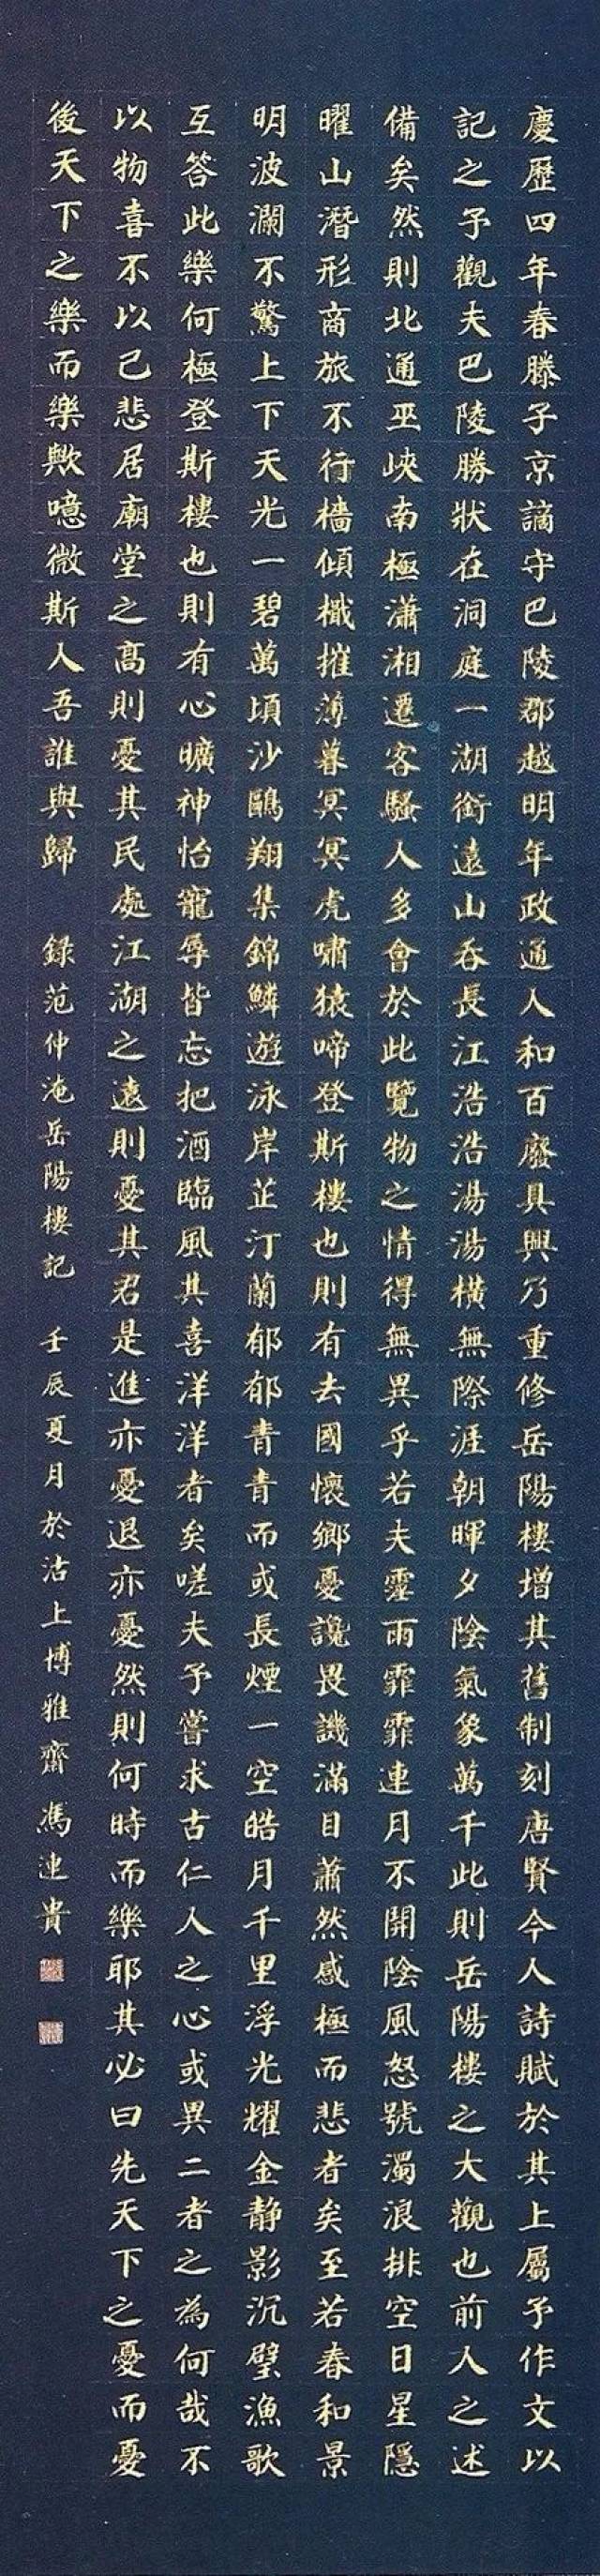 慶歷四年春滕子京謫守巴陵郡越明年政通人和百廢具興乃重修岳陽樓增其舊制刻唐賢今人詩賦於其上屬予作文以
記之予觀夫巴陵勝狀在洞庭一湖銜遠山吞長江浩浩湯湯橫無際涯朝暉夕陰氣象萬千此則岳陽樓之大觀也前人之述
備矣然則北通巫峽南極瀟湘遷客騷人多會於此覽物之情得無異乎若夫霪雨霏霏連月不開陰風怒號濁浪排空日星隱
曜山潛形商旅不行檣傾檝摧薄暮冥冥虎嘯猿啼登斯樓也則有去國懷鄉憂讒畏譏滿目蕭然感極而悲者矣至若春和景
明波瀾不驚上下天光一碧萬頃沙鷗翔集錦鱗遊泳岸芷汀蘭郁郁青青而或長煙一空皓月千里浮光耀金静影沉璧漁歌
互答此樂何極登斯樓也則有心曠神怡寵辱皆忘把酒臨風其喜洋洋者矣嗟夫予嘗求古仁人之心或異二者之為何哉不
以物喜不以己悲居廟堂之高則憂其民處江湖之遠則憂其君是進亦憂退亦憂然則何時而樂耶其必曰先天下之憂而憂
後天下之樂而樂歟噫微斯人吾誰與歸 錄范仲淹岳陽樓記 壬辰夏月於沽上博雅齋馮連貴